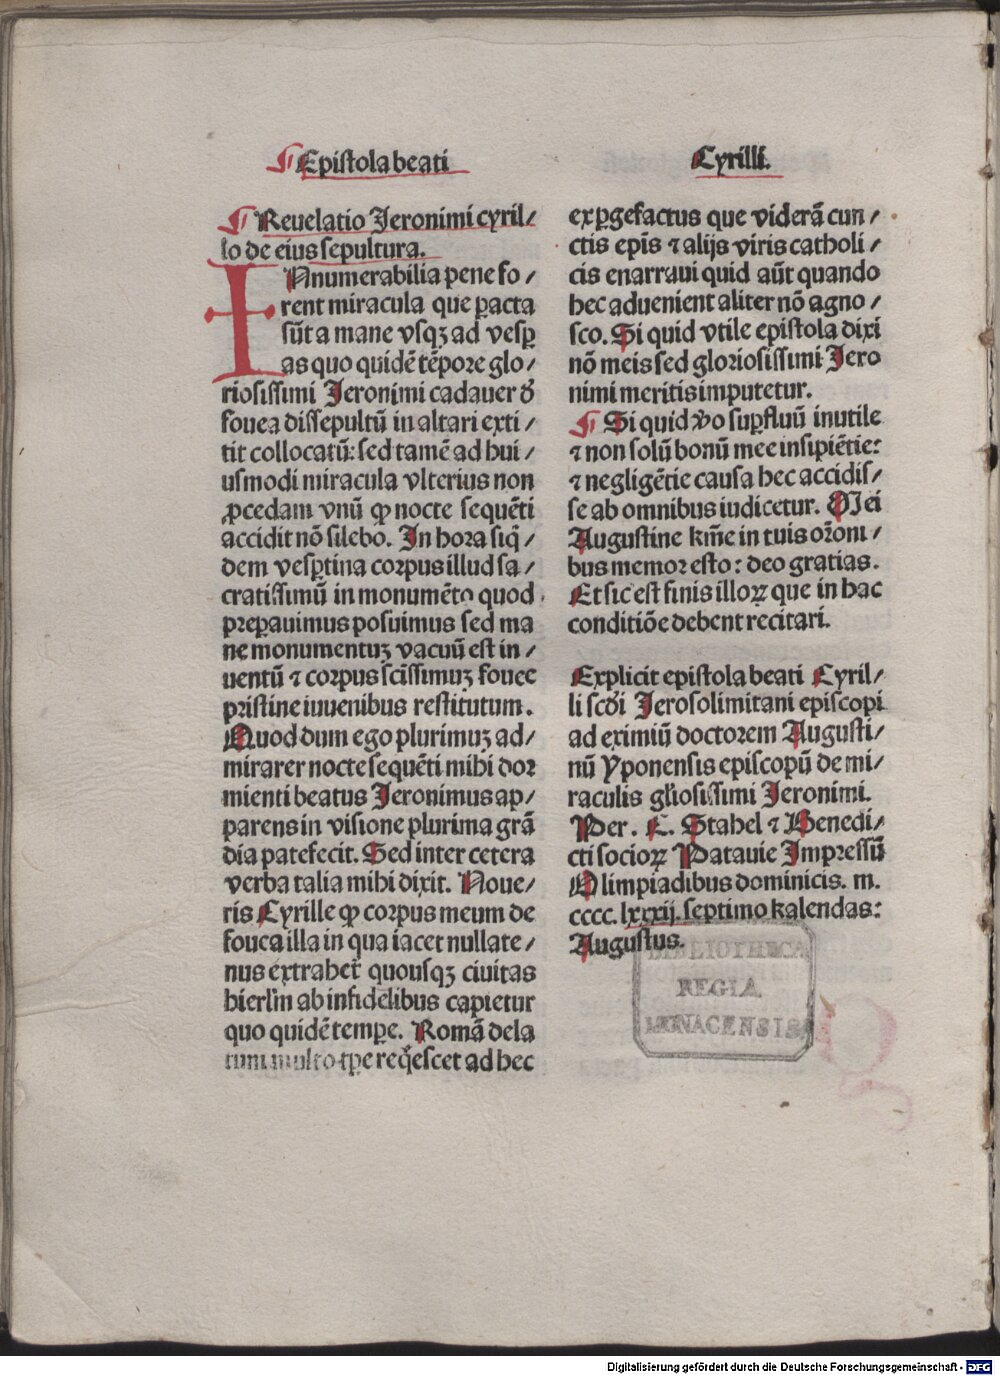 Epistola beati
Cyrilli.
Reuelatio Jeronimi cyril/
lo de eius sepultura.
INnumerabilia pene fo/
rent miracula que ꝑacta
sūt a mane vsqꝫ ad vesꝑ
as quo quidē tēpore glo/
riosissimi Jeronimi cadauer ð
fouea dissepultū in altari exti/
tit collocatū: sed tamē ad hui/
usmodi miracula vlterius non
ꝓcedam vnū ꝙ nocte sequēti
accidit nō silebo. In hora siq̄/
dem vesꝑtina corpus illud sa/
cratissimū in monumēto quod
preꝑauimus posuimus sed ma
ne monumentuꝫ vacuū est in/
uentū ⁊ corpus scīssimuꝫ fouee
pristine iuuenibus restitutum.
Quod dum ego plurimuꝫ ad/
mirarer nocte sequēti mihi dor
mienti beatus Jeronimus ap/
parens in visione plurima grā
dia patefecit. Sed inter cetera
verba talia mihi dixit. Noue/
ris Cyrille ꝙ corpus meum de
fouca illa in qua iacet nullate/
nus extrahet̄ quousqꝫ ciuitas
hierl̄m ab infidelibus capietur
quo quidē temꝑe. Romā dela
tum multo tꝑe req̄escet ad hec
exꝑgefactus que viderā cun/
ctis ep̄is ⁊ alijs viris catholi/
cis enarraui quid aūt quando
hec aduenient aliter nō agno/
sco. Si quid vtile epistola dixi
nō meis sed gloriosissimi Jero
nimi meritis imputetur.
Si quid v̄o suꝑfluū inutile
⁊ non solū bonū mee insipiētie:
⁊ negligētie causa hec accidis/
se ab omnibus iudicetur. Mei
Augustine km̄e in tuis or̄oni/
bus memor esto: deo gratias.
Et sic est finis illoꝝ que in hac
conditiōe debent recitari.
Explicit epistola beati Cyril/
li scd̄i Jerosolimitani episcopi
ad eximiū doctorem Augusti/
nū Yponensis episcopū de mi/
raculis gl̄iosissimi Jeronimi.
Per. C. Stahel ⁊ Benedi/
cti socioꝝ Patauie Impressū
Olimpiadibus dominicis. m.
cccc. lxxxij. septimo kalendas:
Augustus.
BIBLIOTHECA
REGIA
MONACENSIS
Digitalisierung gefördert durch die Deutsche Forschungsgemeinschaft - DFG